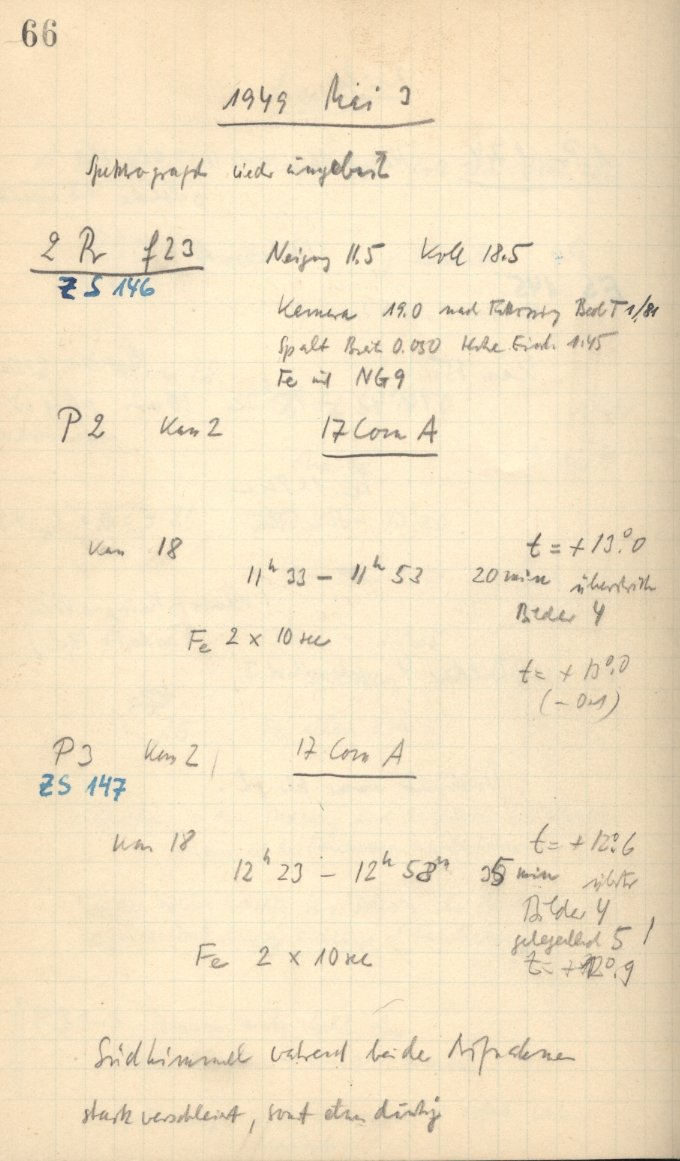 66
1949 Mai 3
Spektrograph wieder eingebaut
2 Pr f23 Neigung 11.5 Koll 18.5
ZS 146
Kamera 19.0 nach 1/81
Spalt Breite 0.030 Höhe 1.45
Fe mit NG9
P2 Kas 2 17 Com A
Kas 18 t = + 13°.0
11h 33 – 11h 53 20 min
Bilder 4
Fe 2 x 10 sec
t = + 13°.0
P3 Kas 2 17 Com A
ZS 147
Kas 18 t = + 12°.6
12h 23 – 12h 58m 35 min
Bilder 4
gelegentlich 5 !
Fe 2 x 10 sec t = + 12°.9
Südhimmel während beider Aufnahmen
stark verschleiert, sonst etwas dunstig